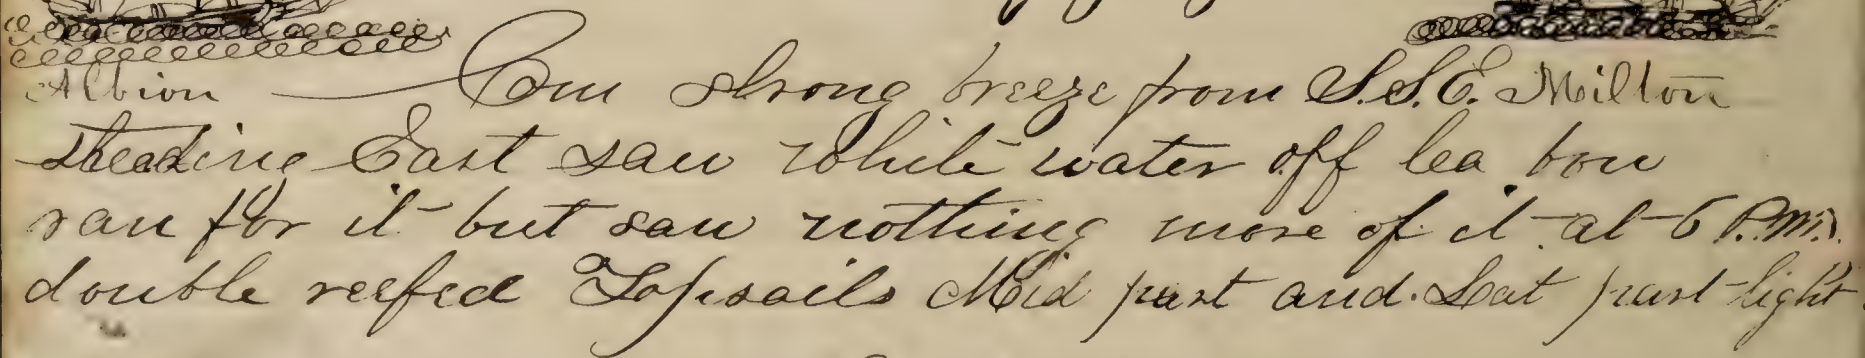 Albion — Com strong breeze from S.S.E. Milton
steading East saw white water off lea bow
ran for it but saw nothing more of it at 6 P.M.
double reefed Topsails Mid part and Lat part light